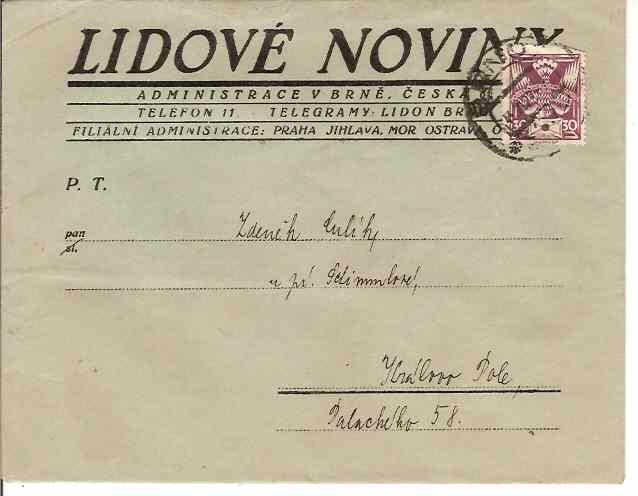 LIDOVÉ NOVINY
ADMINISTRACE V BRNĚ, ČESKÁ
TELEFON 11. TELEGRAMY: LIDON BR
FILIÁLNÍ ADMINISTRACE: PRAHA JIHLAVA, MOR OSTRAVA, O
30 30
BRNO
P. T.
pan
sl.
Zdeněk Culík,
u pí. Schimmlové,
Královo Pole,
Palackého 58.